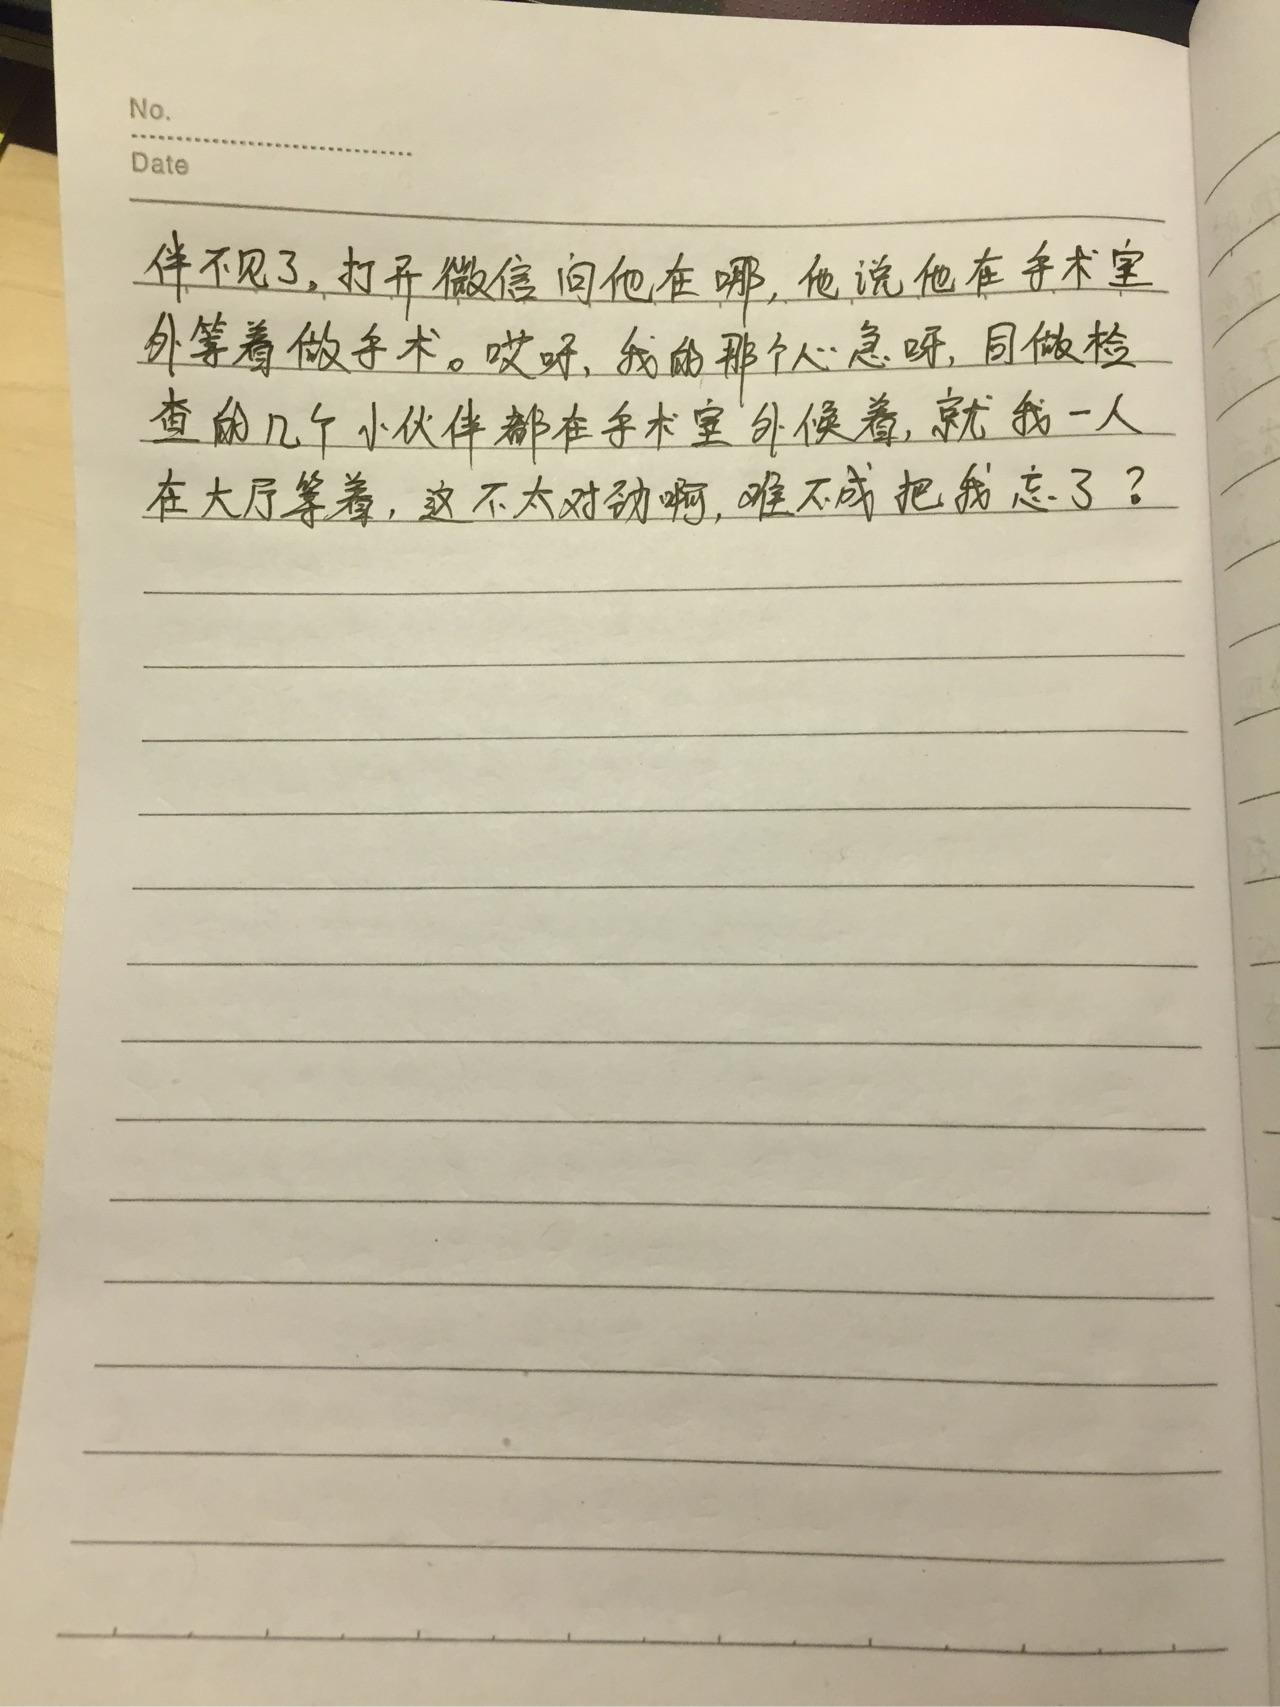 No.
Date
伴不见了。打开微信问他在哪，他说他在手术室
外等着做手术。哎呀，我的那个心急呀，同做检
查的几个小伙伴都在手术室外候着，就我一人
在大厅等着，这不太对劲啊，难不成把我忘了？